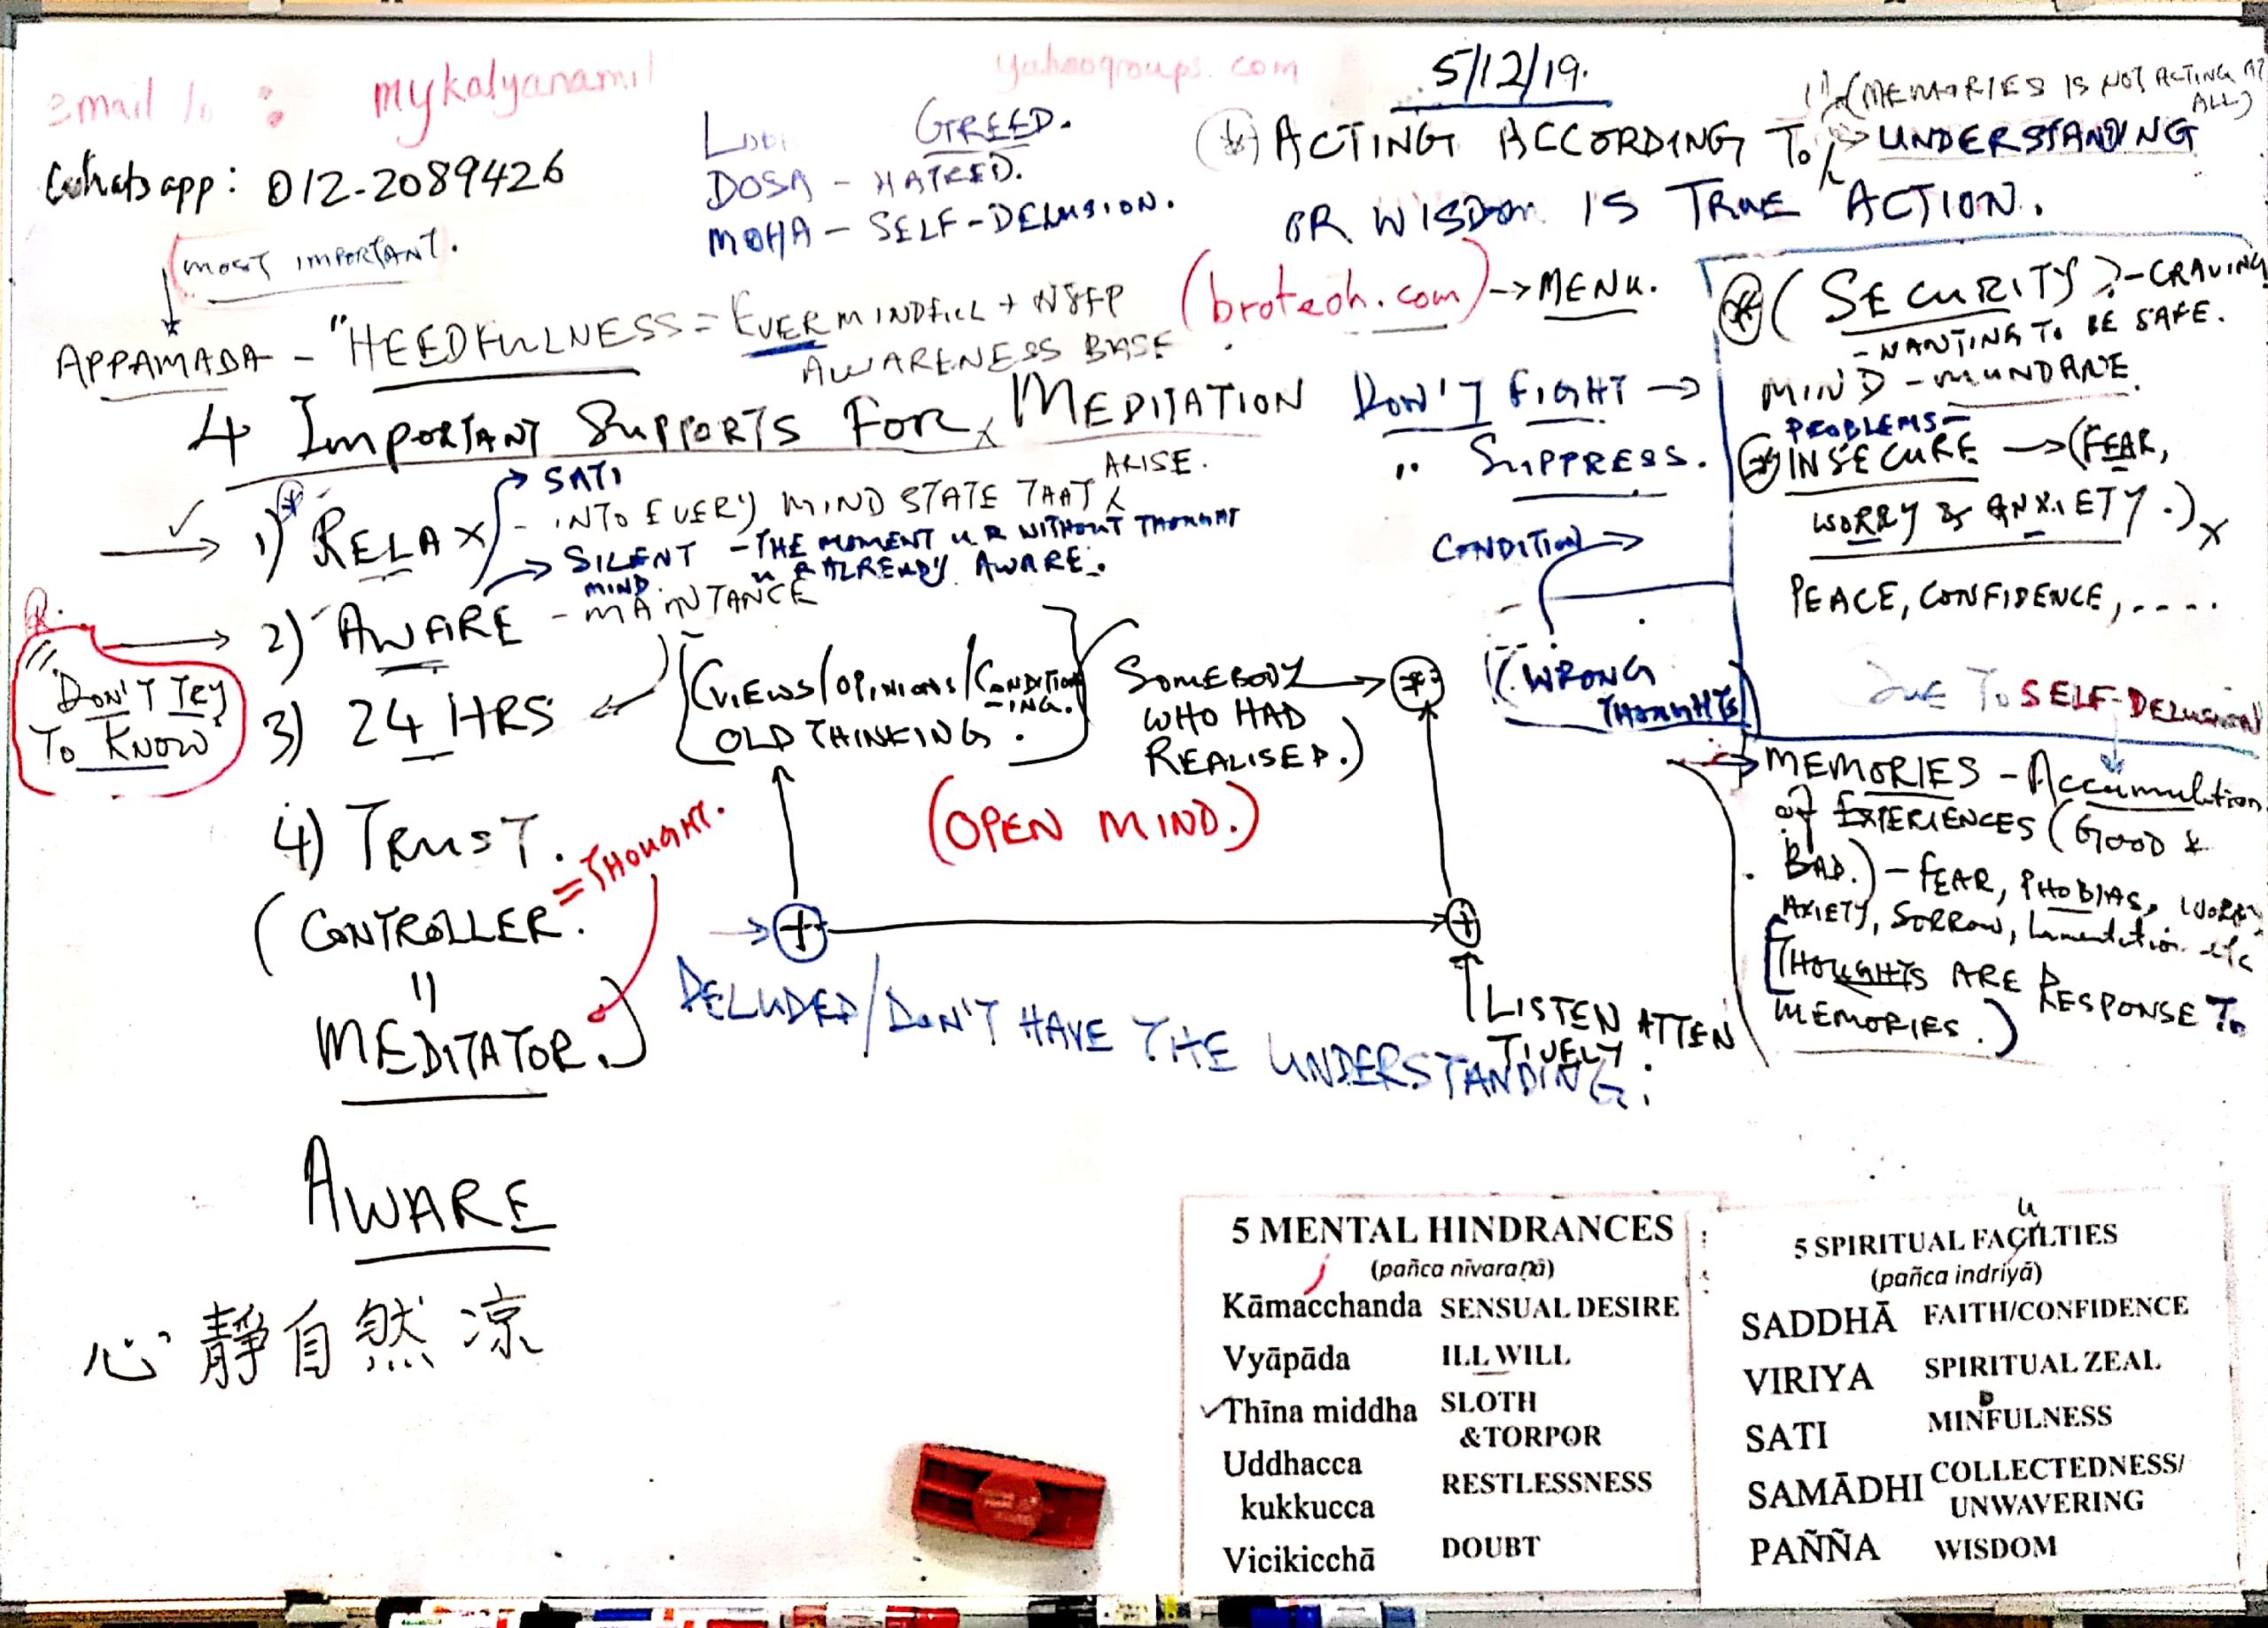 email to : mykalyanamil yahoogroups.com
Whatsapp: 012-2089426
GREED.
DOSA - HATRED.
MOHA - SELF-DELUSION.
5/12/19.
(MEMORIES IS NOT ACTING AT ALL)
(*) ACTING ACCORDING TO UNDERSTANDING
OR WISDOM IS TRUE ACTION.
(MOST IMPORTANT.
APPAMADA - "HEEDFULNESS = EVER MINDFUL +
AWARENESS BASE
(broteoh.com) -> MENU.
4 IMPORTANT SUPPORTS FOR MEDITATION
1) RELAX - INTO EVERY MIND STATE THAT ARISE.
SATI
SILENT MIND - THE MOMENT U R WITHOUT THOUGHT
U R ALREADY AWARE.
2) AWARE - MAINTANCE
3) 24 HRS
4) TRUST.
"DON'T TRY
TO KNOW"
(CONTROLLER. = THOUGHT.
=
MEDITATOR.)
AWARE
心靜自然凉
(VIEWS/OPINIONS/CONDITION
-ING.
OLD THINKING.
SOMEBODY
WHO HAD
REALISED.)
(OPEN MIND.)
DELUDED/DON'T HAVE THE UNDERSTANDING;
LISTEN ATTEN
TIVELY
DON'T FIGHT ->
" SUPPRESS.
CONDITION ->
(WRONG
THOUGHTS)
(*) (SECURITY) - CRAVING
- WANTING TO BE SAFE.
MIND - MUNDANE.
PROBLEMS -
(*) INSECURE -> (FEAR,
WORRY & ANXIETY.) X
PEACE, CONFIDENCE, .....
DUE TO SELF-DELUSION
-> MEMORIES - Accumulation
of EXPERIENCES (GOOD &
BAD.) - FEAR, PHOBIAS, WORRY
AXIETY, SORROW, Lamentation etc
[THOUGHTS ARE RESPONSE TO
MEMORIES.)
5 MENTAL HINDRANCES
(pañca nīvaraṇā)
Kāmacchanda SENSUAL DESIRE
Vyāpāda ILL WILL
Thīna middha SLOTH
&TORPOR
Uddhacca
kukkucca RESTLESSNESS
Vicikicchā DOUBT
5 SPIRITUAL FACULTIES
(pañca indriyā)
SADDHĀ FAITH/CONFIDENCE
VIRIYA SPIRITUAL ZEAL
SATI MINDFULNESS
SAMĀDHI COLLECTEDNESS/
UNWAVERING
PAÑÑA WISDOM